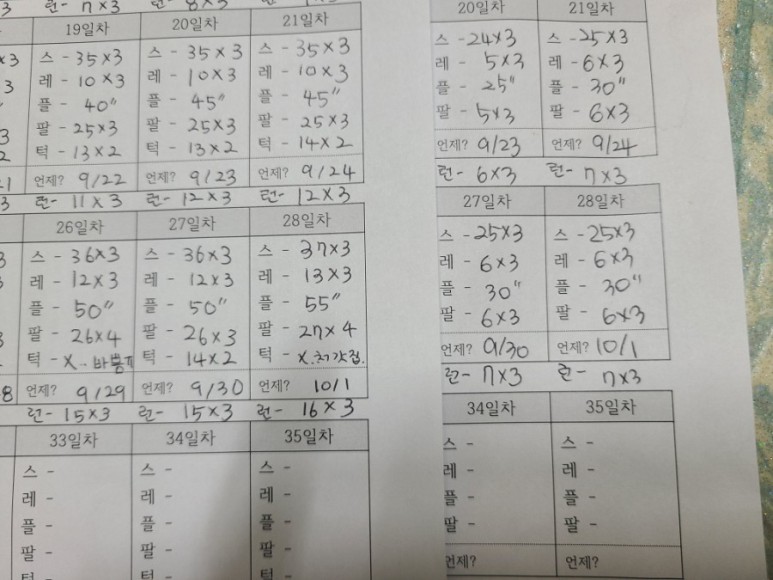 3 런- 7×3 런- 8×3
19일차 20일차 21일차
×3 스 - 35×3 스 - 35×3 스 - 35×3
3 레 - 10×3 레 - 10×3 레 - 10×3
플 - 40" 플 - 45" 플 - 45"
3 팔 - 25×3 팔 - 25×3 팔 - 25×3
2 턱 - 13×2 턱 - 13×2 턱 - 14×2
21 언제? 9/22 언제? 9/23 언제? 9/24
3 런- 11×3 런- 12×3 런- 12×3
26일차 27일차 28일차
3 스 - 36×3 스 - 36×3 스 - 37×3
3 레 - 12×3 레 - 12×3 레 - 13×3
플 - 50" 플 - 50" 플 - 55"
3 팔 - 26×4 팔 - 26×3 팔 - 27×4
턱 - X.. 턱 - 14×2 턱 - X.
8 언제? 9/29 언제? 9/30 언제? 10/1
런- 15×3 런- 15×3 런- 16×3
33일차 34일차 35일차
스 - 스 - 스 -
레 - 레 - 레 -
플 - 플 - 플 -
팔 - 팔 - 팔 -
턱 - 턱 - 턱 -
20일차 21일차
스 - 24×3 스 - 25×3
레 - 5×3 레 - 6×3
플 - 25" 플 - 30"
팔 - 5×3 팔 - 6×3
언제? 9/23 언제? 9/24
런- 6×3 런- 7×3
27일차 28일차
스 - 25×3 스 - 25×3
레 - 6×3 레 - 6×3
플 - 30" 플 - 30"
팔 - 6×3 팔 - 6×3
언제? 9/30 언제? 10/1
런- 7×3 런- 7×3
34일차 35일차
스 - 스 -
레 - 레 -
플 - 플 -
팔 - 팔 -
언제? 언제?